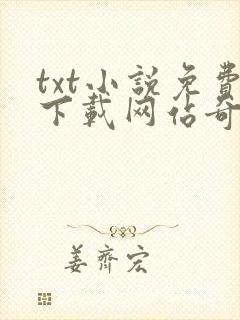 txt小説免費
下載网佔奇
姜齊宏